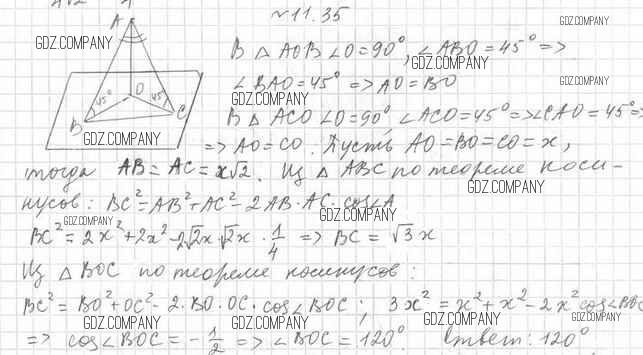 №11.35
GDZ.COMPANY
A
GDZ.COMPANY
В △ AOB ∠O = 90°, ∠ABO = 45° =>
GDZ.COMPANY
GDZ.COMPANY
O
45°
45°
B
C
∠BAO = 45° => AO = BO
GDZ.COMPANY
В △ ACO ∠O = 90° ∠ACO = 45° => ∠CAO = 45° =>
GDZ.COMPANY
GDZ.COMPANY
=> AO = CO. Пусть AO = BO = CO = x,
тогда AB = AC = x√2. Из △ ABC по теореме коси-
GDZ.COMPANY
нусов: BC² = AB² + AC² - 2 AB · AC · cos∠A
GDZ.COMPANY
GDZ.COMPANY
BC² = 2x² + 2x² - 2√2x · √2x · 1/4 => BC = √3 x
Из △ BOC по теореме косинусов:
BC² = BO² + OC² - 2 · BO · OC · cos∠BOC; 3x² = x² + x² - 2x² cos∠BOC
GDZ.COMPANY
GDZ.COMPANY
GDZ.COMPANY
GDZ.COMPANY
=> cos∠BOC = - 1/2 => ∠BOC = 120°. Ответ: 120°.